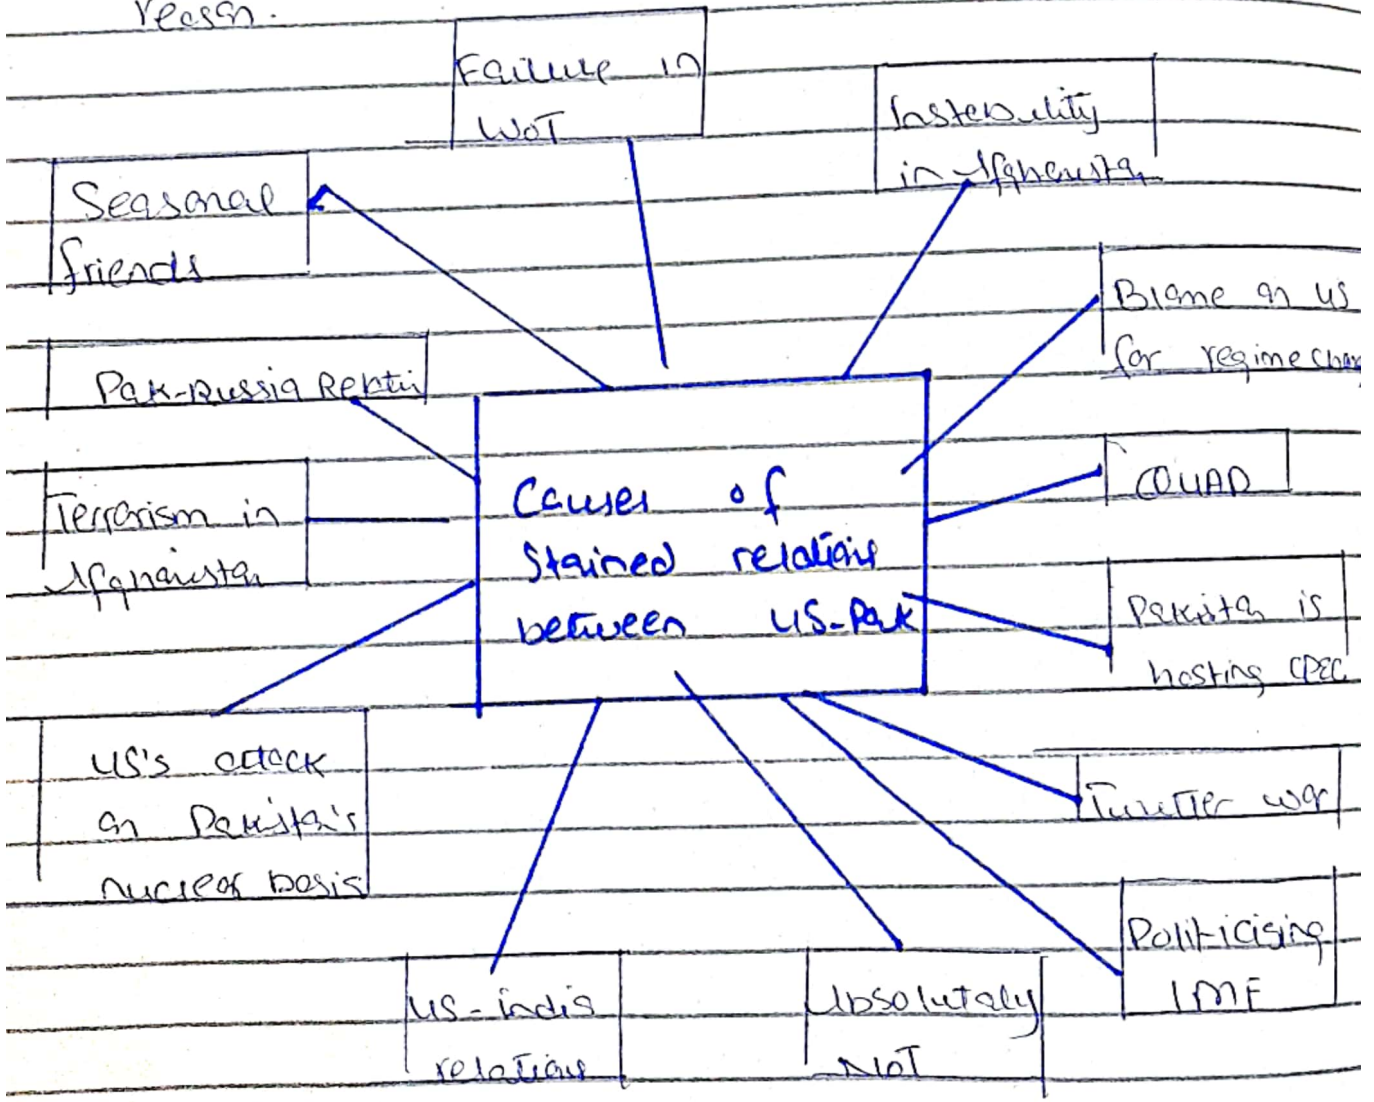 reason.
Failure in
WOT
Instability
in Afghanistan
Seasonal
friends
Blame on US
for regime chang
Pak-Russia Relati
QUAD
Terrorism in
Afghanistan
Causes of
Stained relations
between US-Pak
Pakistan is
hosting CPEC
US's attack
on Pakistan's
nuclear basis
Twitter war
Politicising
IMF
US-india
relations
Absolutaly
NOT